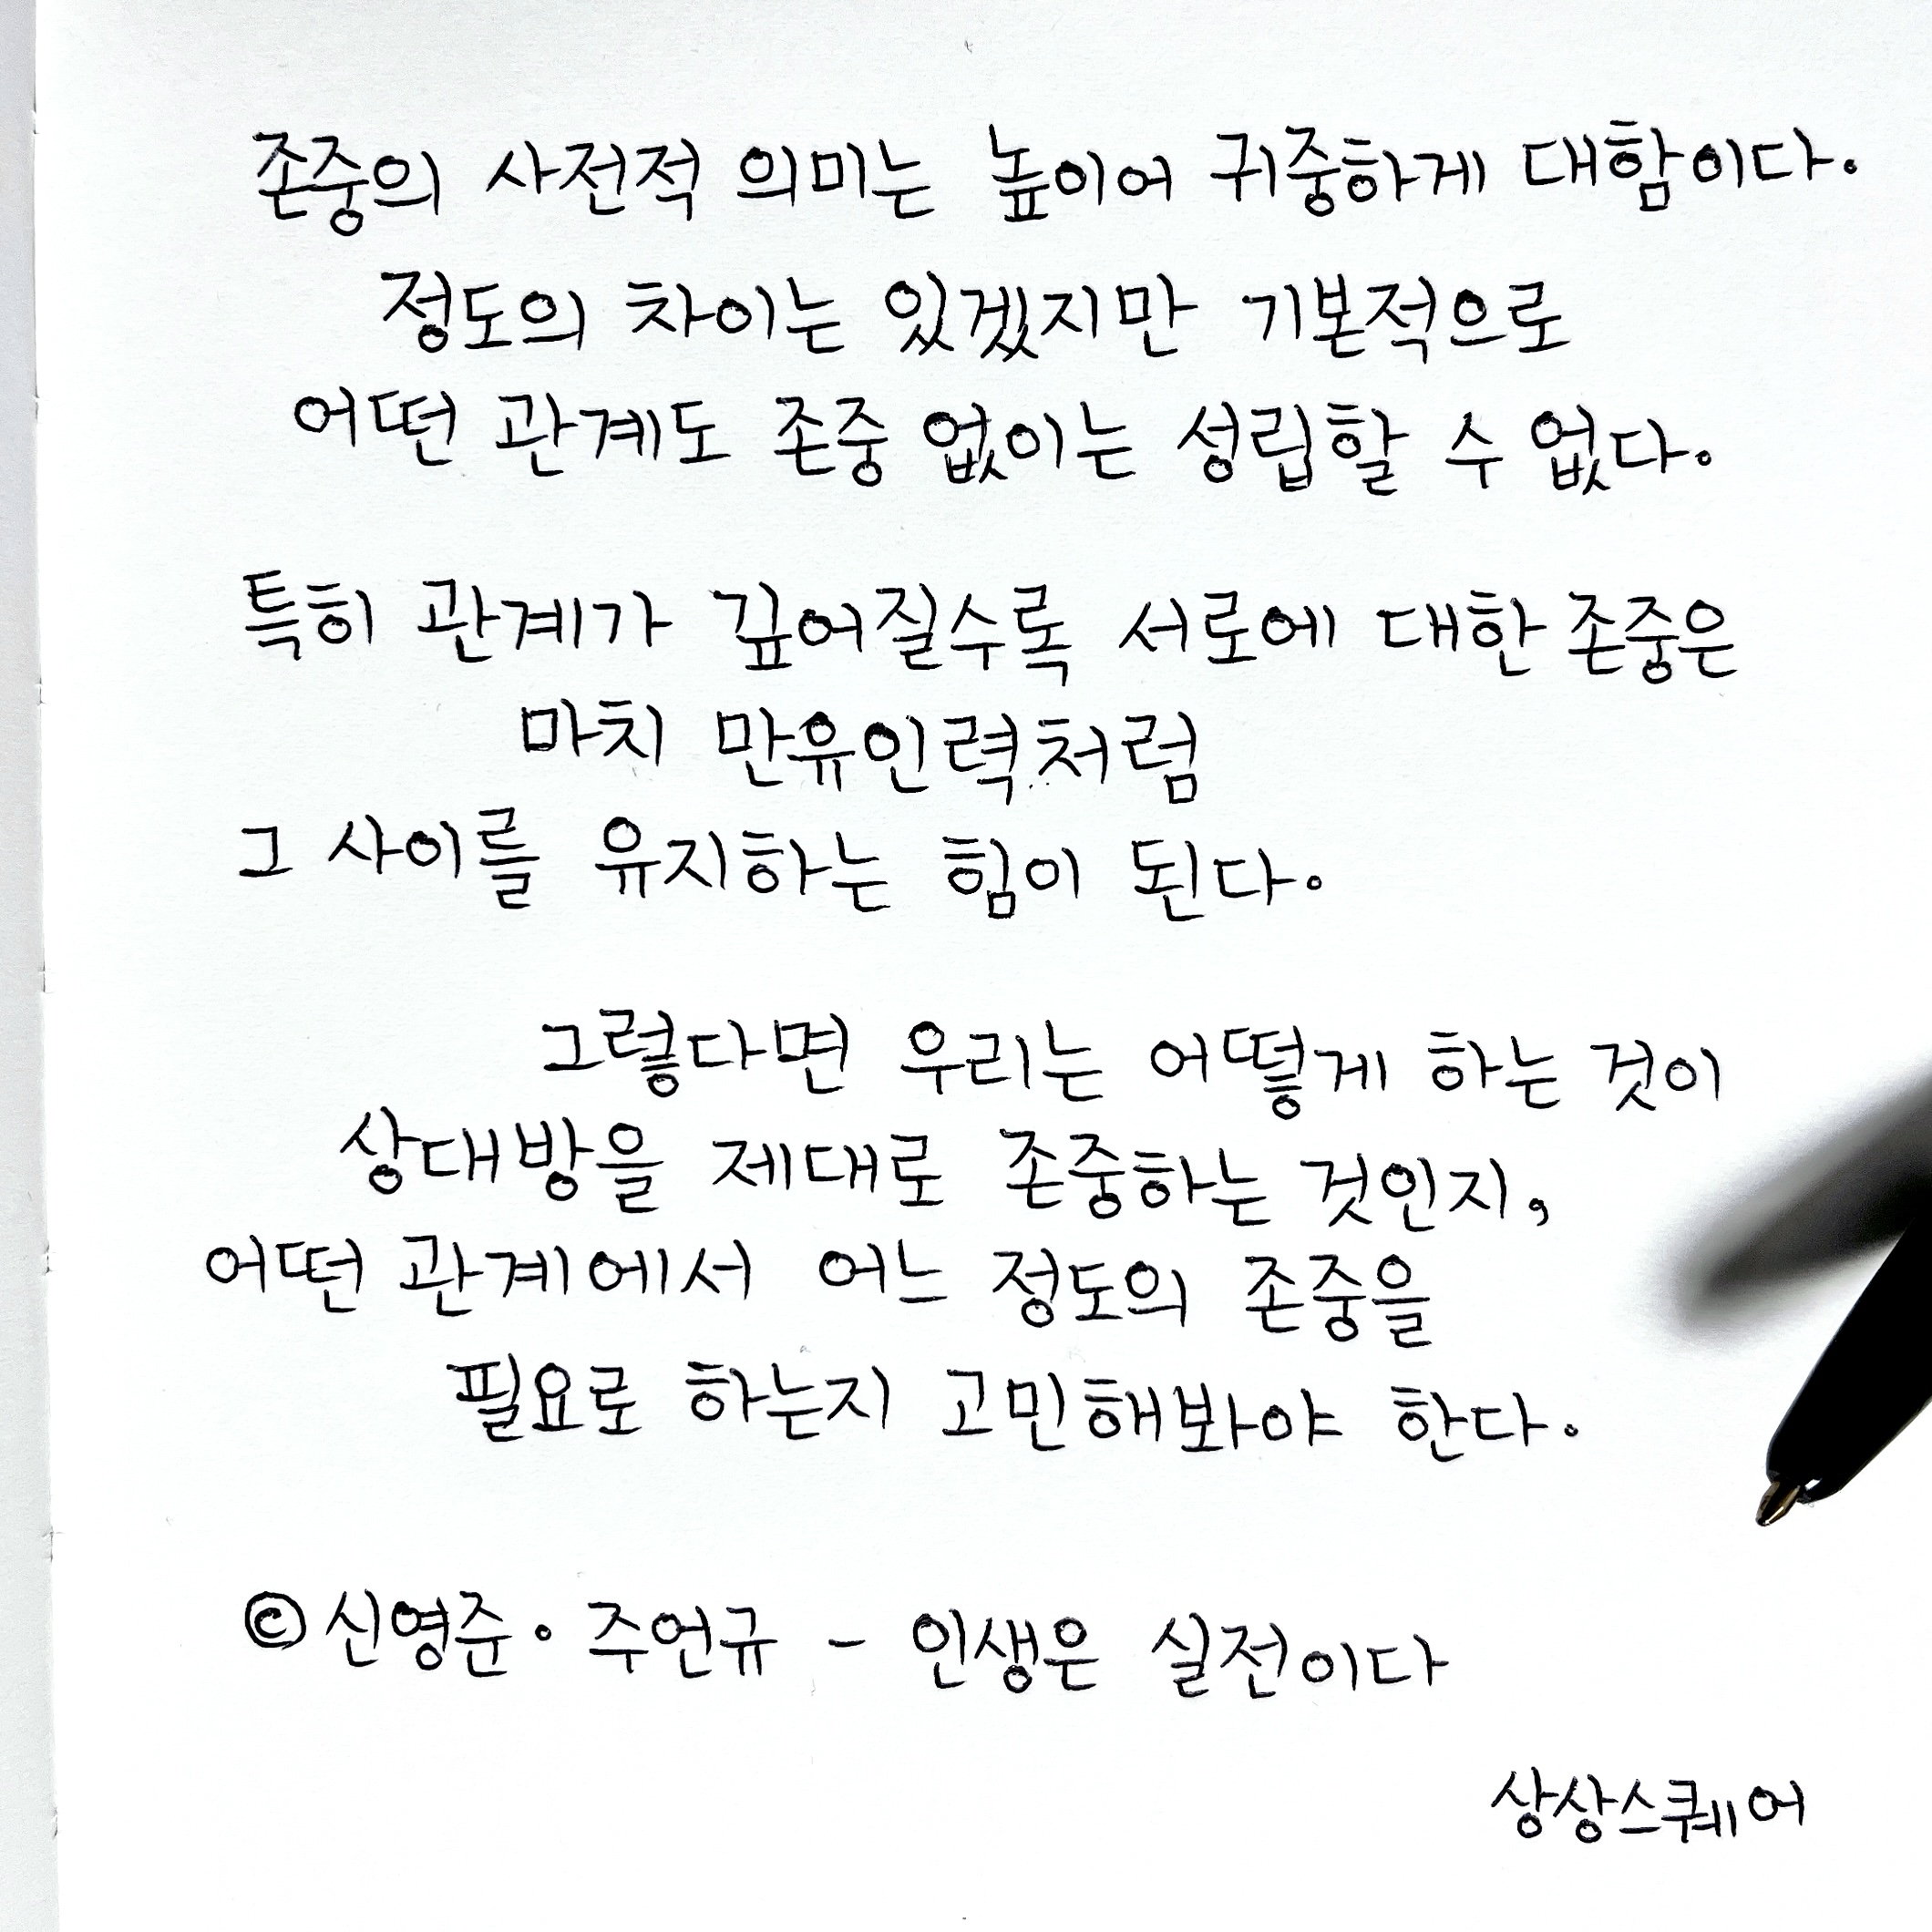 존중의 사전적 의미는 높이어 귀중하게 대함이다.
정도의 차이는 있겠지만 기본적으로
어떤 관계도 존중 없이는 성립할 수 없다.
특히 관계가 깊어질수록 서로에 대한 존중은
마치 만유인력처럼
그 사이를 유지하는 힘이 된다.
그렇다면 우리는 어떻게 하는 것이
상대방을 제대로 존중하는 것인지,
어떤 관계에서 어느 정도의 존중을
필요로 하는지 고민해봐야 한다.
© 신영준· 주언규 - 인생은 실전이다
상상스퀘어